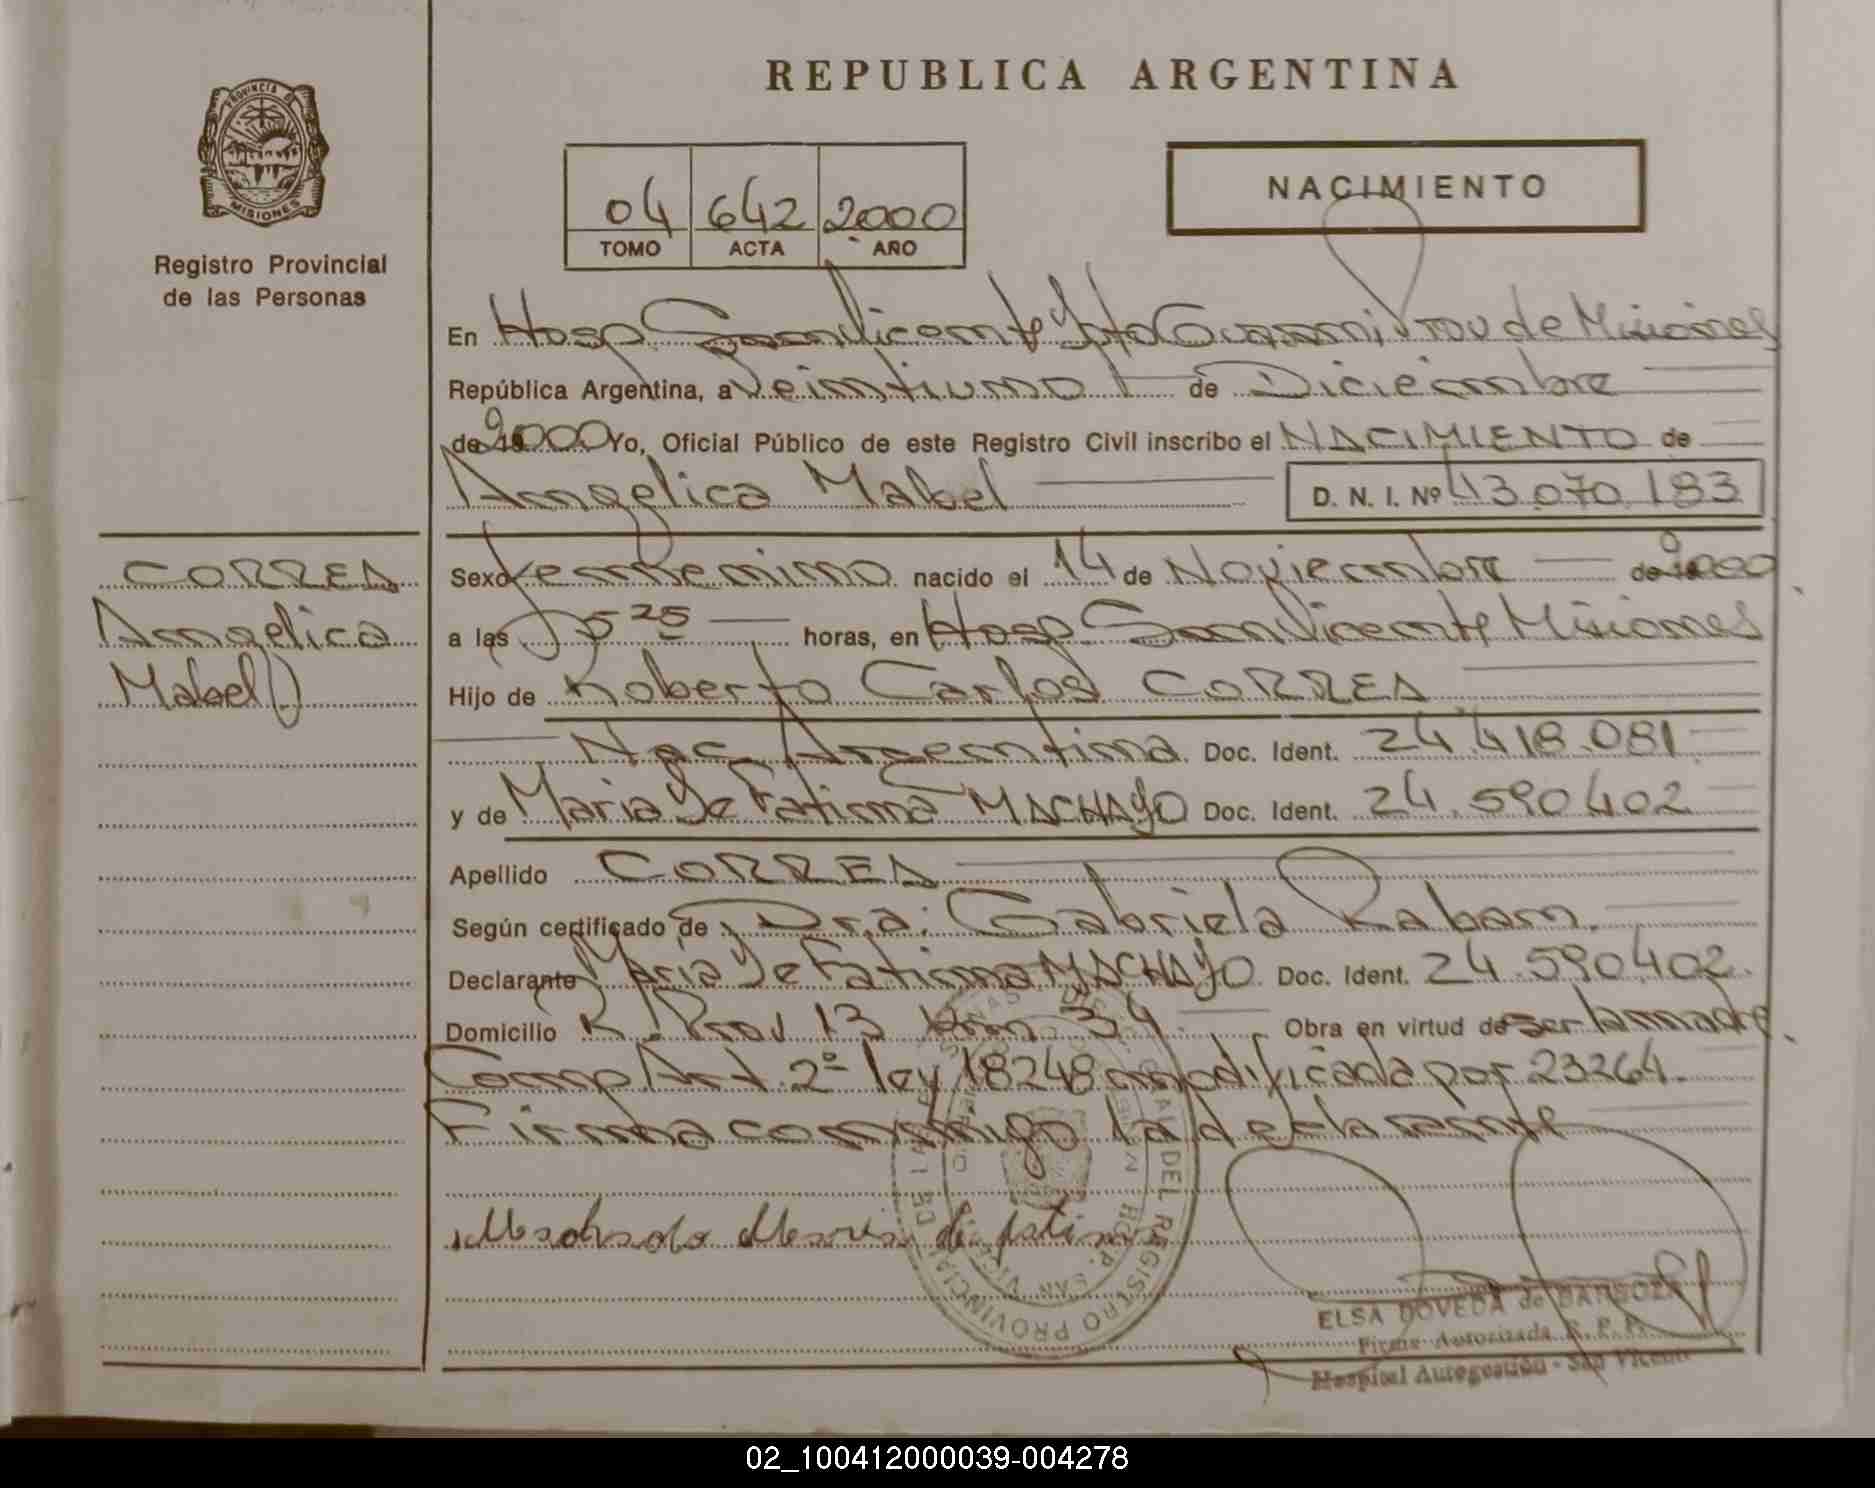 REPUBLICA ARGENTINA
PROVINCIA DE
MISIONES
Registro Provincial
de las Personas
04 642 2000
TOMO ACTA AÑO
NACIMIENTO
En Hosp San Vicente Dpto Guarani Prov de Misiones
República Argentina, a Veintiuno de Diciembre
de 2000 Yo, Oficial Público de este Registro Civil inscribo el NACIMIENTO de
Angelica Mabel D. N. I. Nº 43.070.183
CORREA
Angelica
Mabel
Sexo Femenino nacido el 14 de Noviembre de 2000
a las 5 25 horas, en Hosp San Vicente Misiones
Hijo de Roberto Carlos CORREA
Nac. Argentina Doc. Ident. 24.418.081
y de Maria De Fatima MACHADO Doc. Ident. 24.590402
Apellido CORREA
Según certificado de Dra: Gabriela Raban.
Declarante Maria De Fatima MACHADO Doc. Ident. 24.590402.
Domicilio R. Prov 13 km 34 Obra en virtud de ser la madre.
Comp Art. 2º ley 18248 modificada por 23264.
Firma conmigo la declarante
Machado Maria de fatima
ELSA DOVEDA de BARBOZA
Firma Autorizada R. P. P.
Hospital Autogestión - San Vicente
02_100412000039-004278